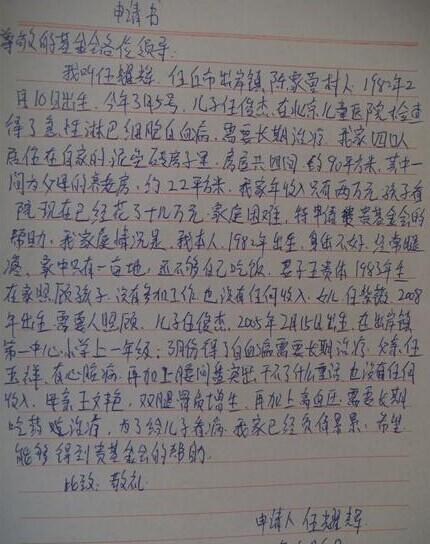 申请书
尊敬的基金会各位领导:
我叫任耀辉,任丘市出岸镇陈家营村人,1982年2
月10日出生,今年3月5号,儿子任俊杰在北京儿童医院检查
得了急性淋巴细胞白血病,需要长期治疗,我家四口人
居住在自家的泥坯砖房子里,房屋共四间,约90平方米,其中一
间为父母的养老房,约22平方米,我家年收入只有两万元,孩子看
病现在已经花了十几万元,家庭困难,特申请贵基金会的
帮助,我家庭情况是,我本人,1982年出生,身体不好,经常腿
疼,家中只有一亩地,还不够自己吃饭,妻子王 1983年生
在家照顾孩子,没有参加工作,也没有任何收入,女儿任 2008
年出生,需要人照顾,儿子任俊杰,2005年2月15日出生,在出岸镇
第一中心小学上一年级;3月份得了白血病需要长期治疗,父亲任
玉祥,有心脏病,再加上腰间盘突出,干不了什么重活,也没有任何
收入,母亲王文艳,双腿骨质增生,再加上高血压,需要长期
吃药治病,为了给儿子看病,我家已经负债累累,希望
能够得到贵基金会的帮助。
此致:敬礼
申请人 任耀辉